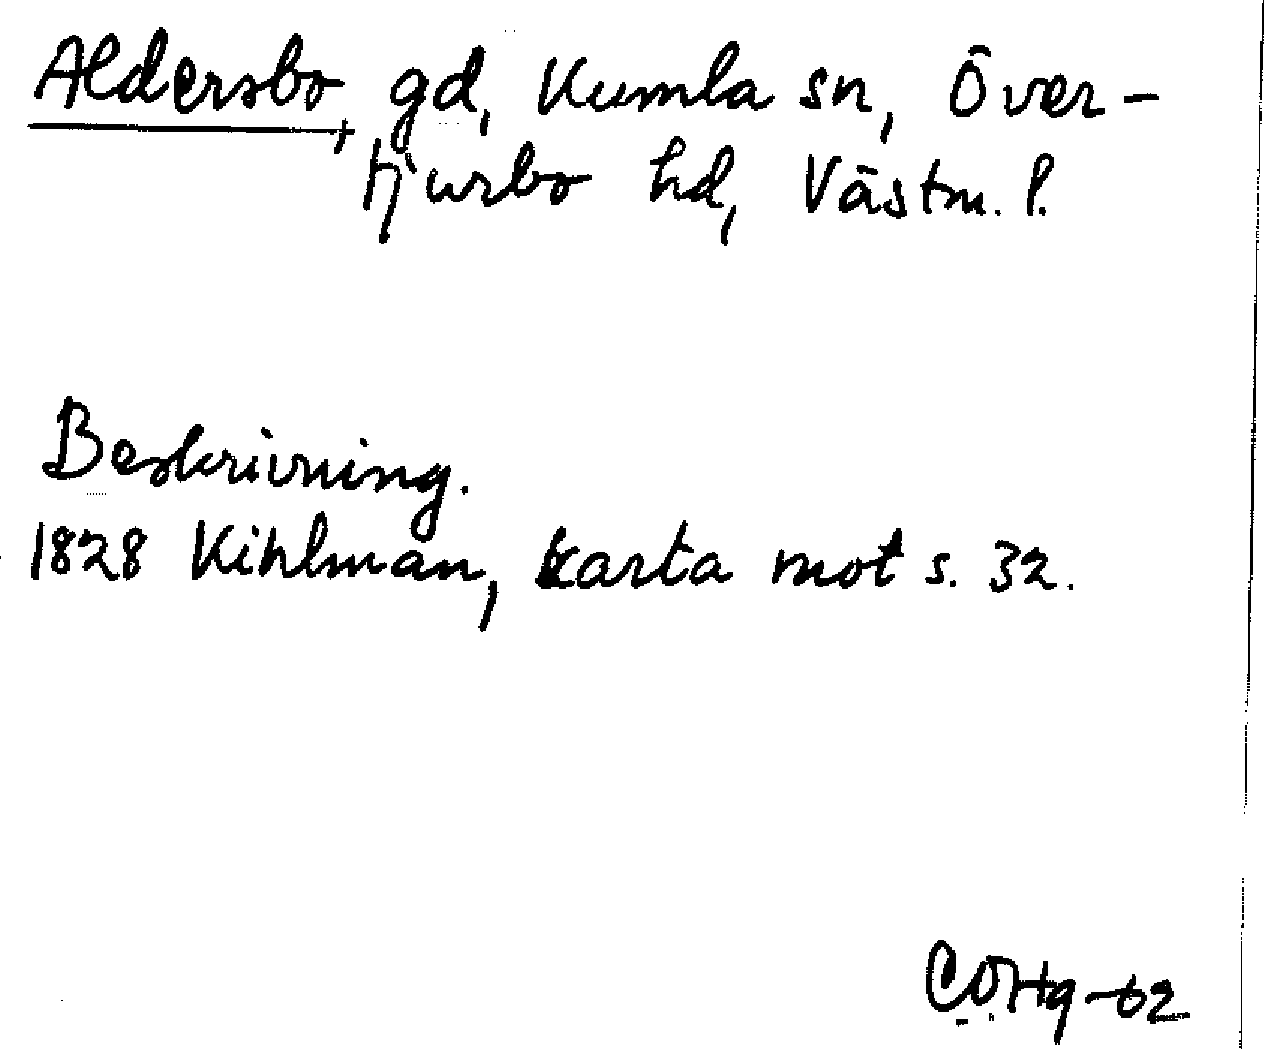 Aldersbo, gd, Kumla sn, Över-
tjurbo hd, Västm. l.
Beskrivning.
1828 Kihlman, karta mot s. 32.